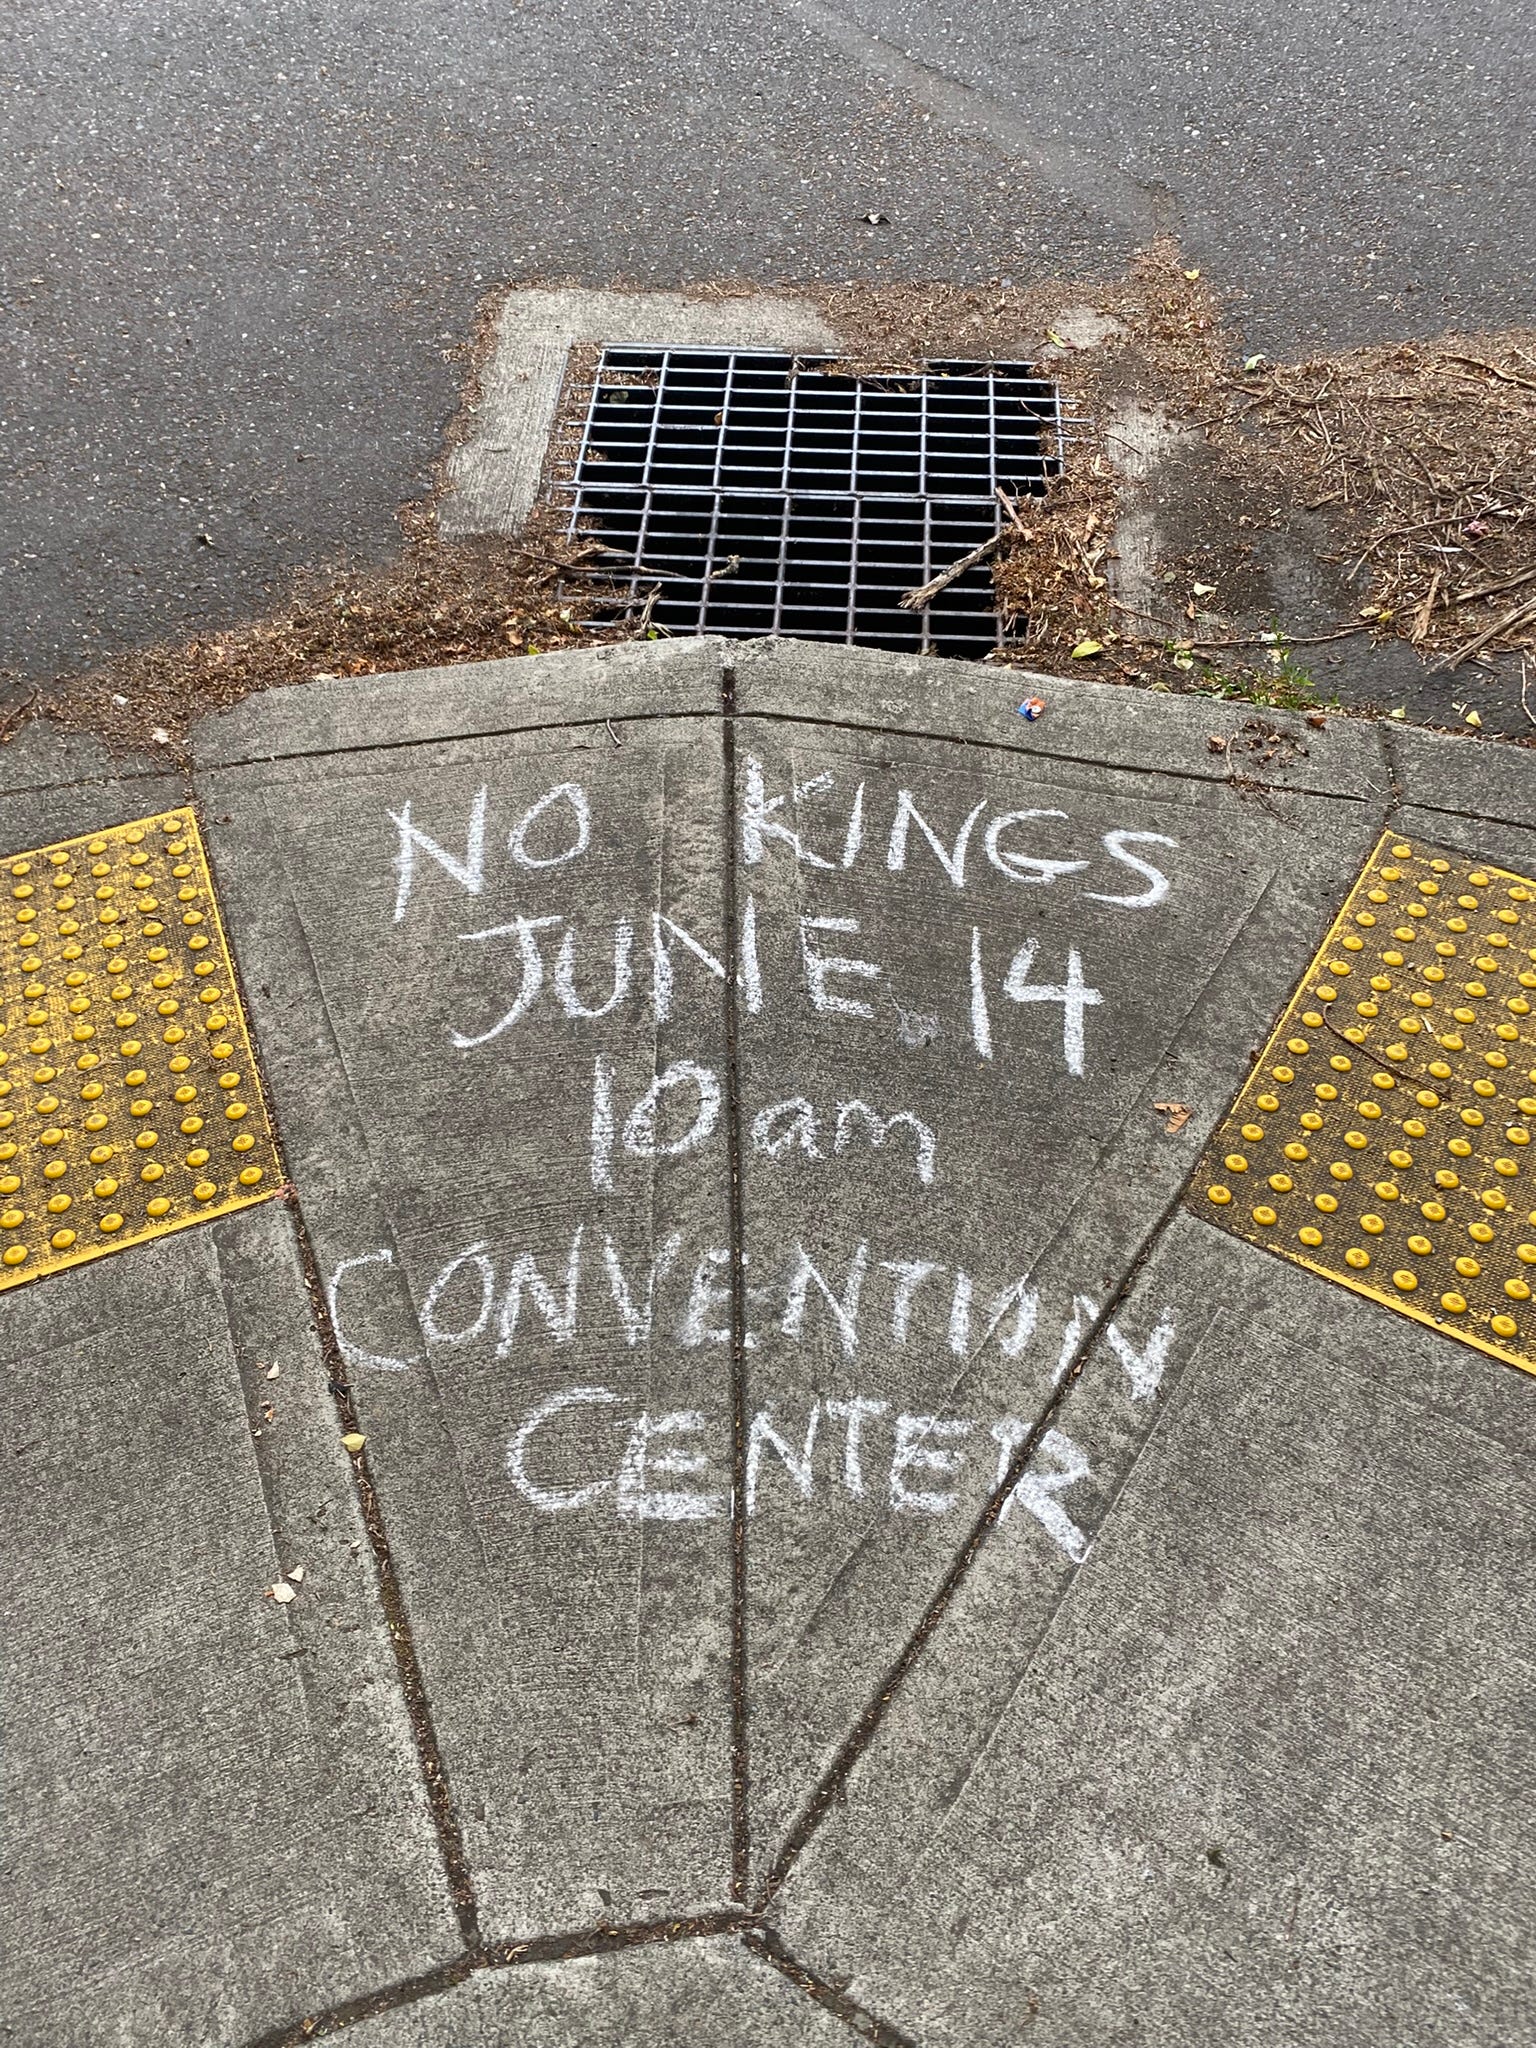 NO KINGS
JUNE 14
10am
CONVENTION
CENTER